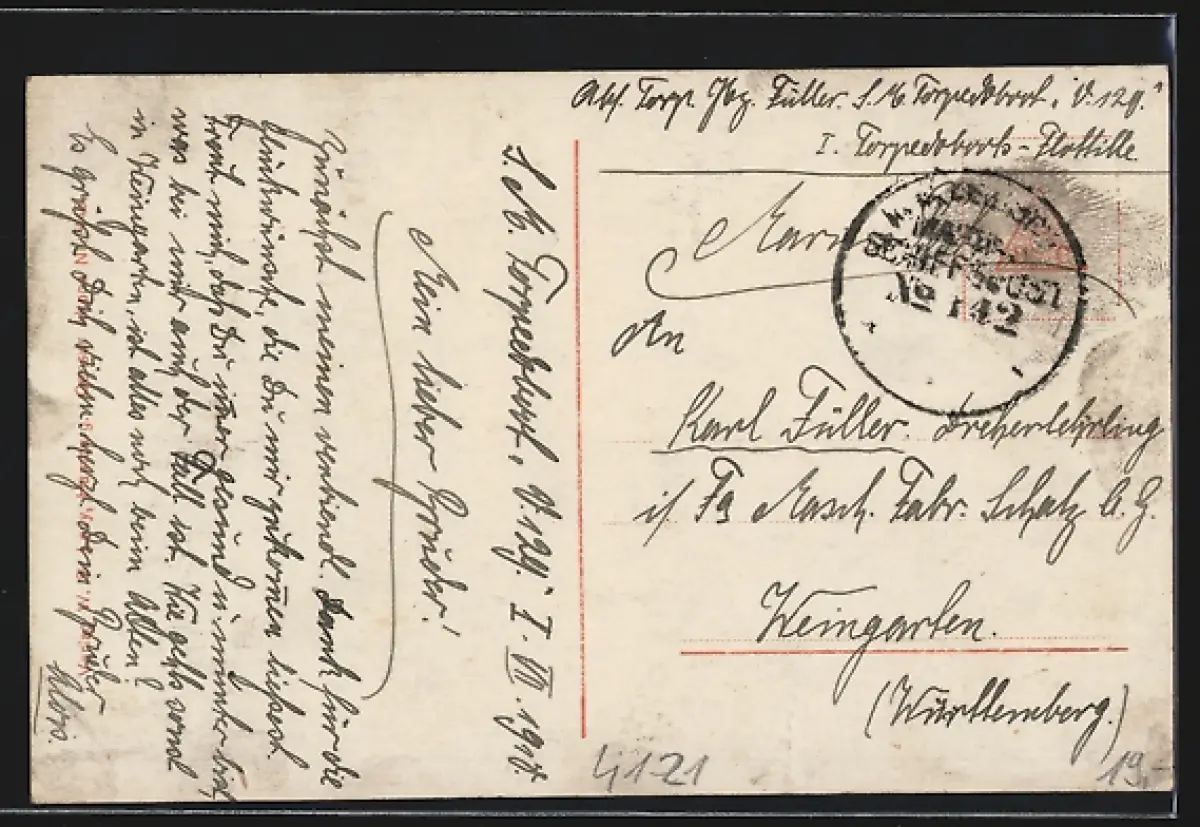 Abs. Torp. Hzg. Füller. S.M. Torpedoboot „V.129.“
I. Torpedoboots-Flottille
KAIS. DEUTSCHE
MARINE-
SCHIFFSPOST
No 142
An
Karl Füller. Dreherlehrling
i/ Fa Masch. Fabr. Schatz A.G.
Weingarten.
(Württemberg.)
S.M. Torpedoboot „V.129.“ I. VII. 1918.
Mein lieber Bruder!
Zunächst meinen verbindl. Dank für die
Glückwünsche, die Du mir zukom̄en ließest.
Freut mich, daß Du im̄er gesund u. munter bist,
was bei mir auch der Fall ist. Wie gehts sonst
in Weingarten, ist alles noch beim Alten?
Es grüßt Dich vielm. herzl. Dein Bruder
Alois.
4121
19,-